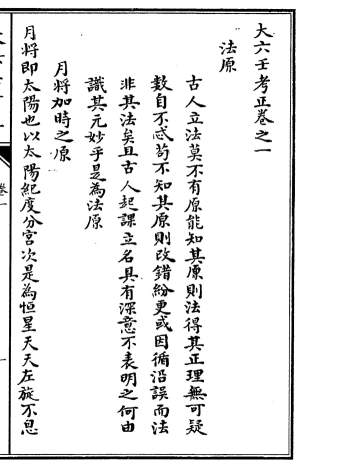 大六壬考正卷之一
法原
古人立法莫不有原能知其原則法得其正理無可疑
數自不忒苟不知其原則改錯紛更或因循沿誤而法
非其法矣且古人起課立名具有深意不表明之何由
識其元妙乎是為法原
月將加時之原
月將即太陽也以太陽紀度分宮次是為恒星天天左旋不息
卷一
一